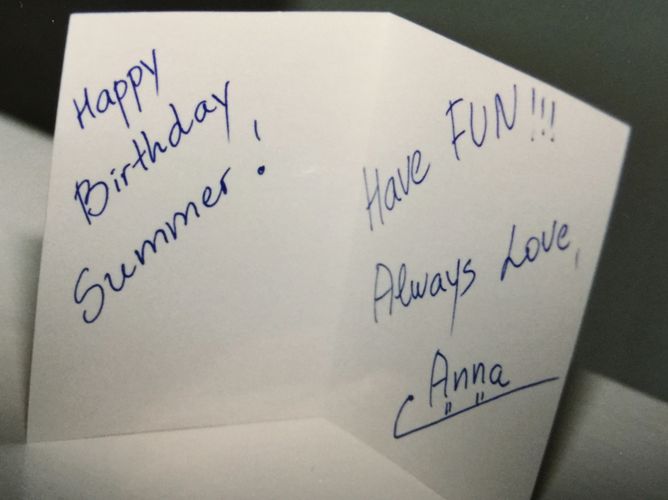 Happy
Birthday
Summer!
Have FUN!!!
Always Love,
Anna